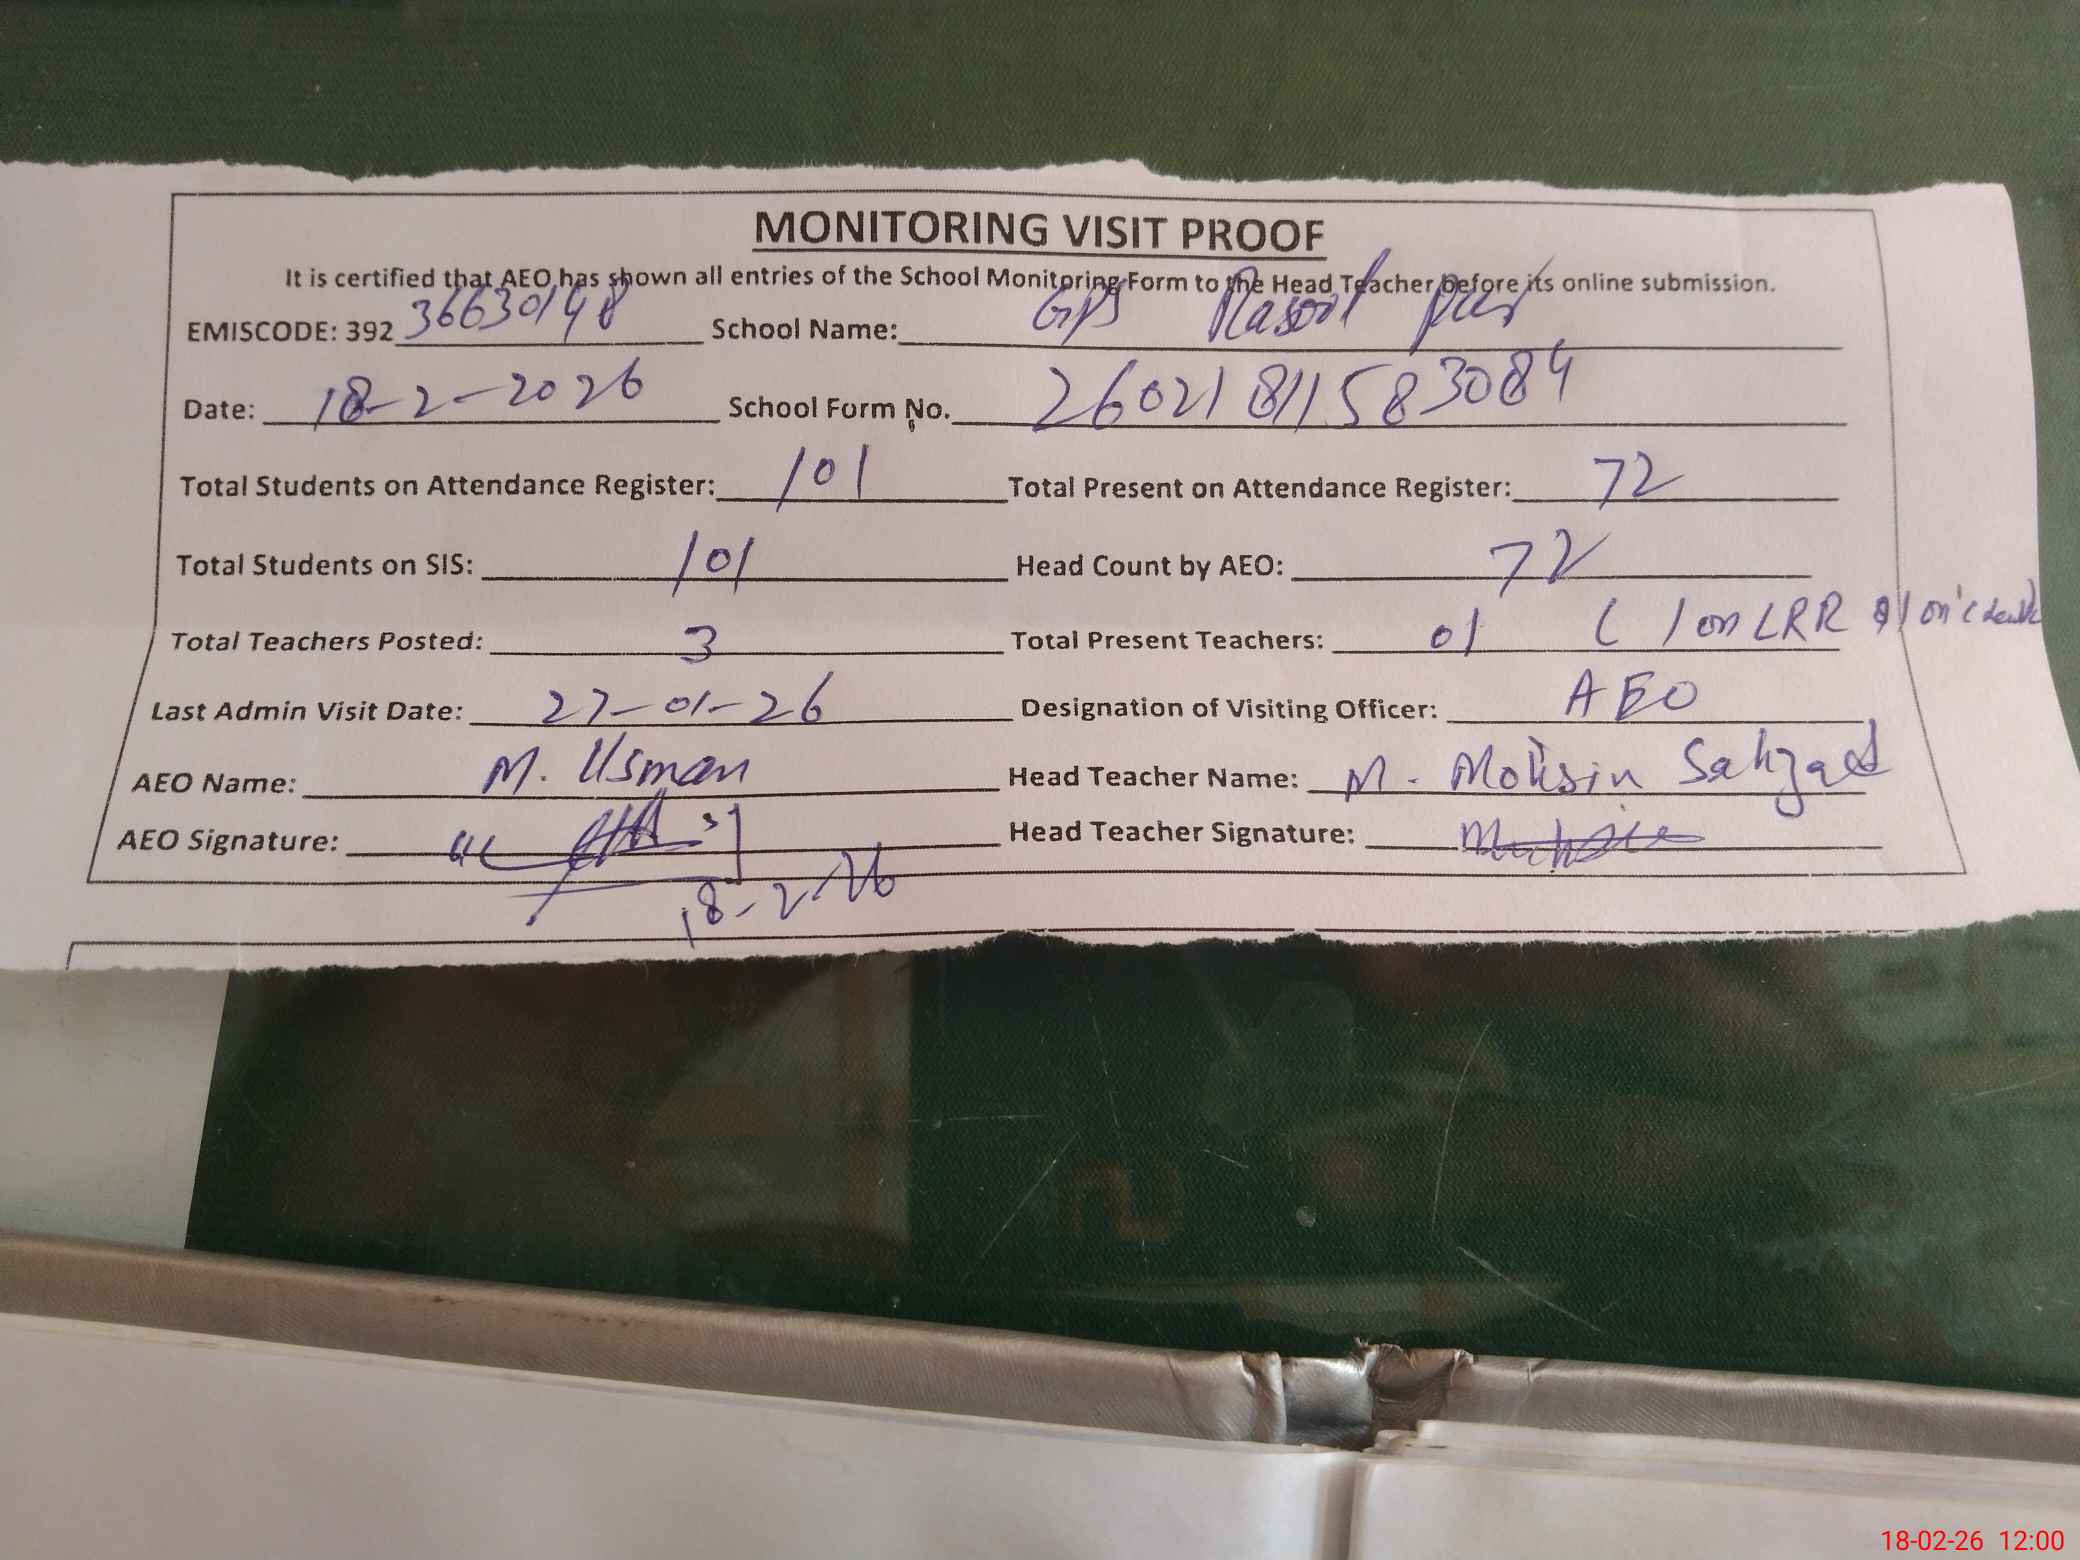 MONITORING VISIT PROOF
It is certified that AEO has shown all entries of the School Monitoring Form to the Head Teacher before its online submission.
EMISCODE: 392 36630148 School Name: GPS Rasool pur
Date: 18-2-2026 School Form No. 26021811583084
Total Students on Attendance Register: 101 Total Present on Attendance Register: 72
Total Students on SIS: 101 Head Count by AEO: 72
Total Teachers Posted: 3 Total Present Teachers: 01 ( 1 on LRR 1 on
Last Admin Visit Date: 27-01-26 Designation of Visiting Officer: AEO
AEO Name: M. Usman Head Teacher Name: M. Mohsin Sahzad
AEO Signature: Head Teacher Signature:
18-2-26
18-02-26 12:00